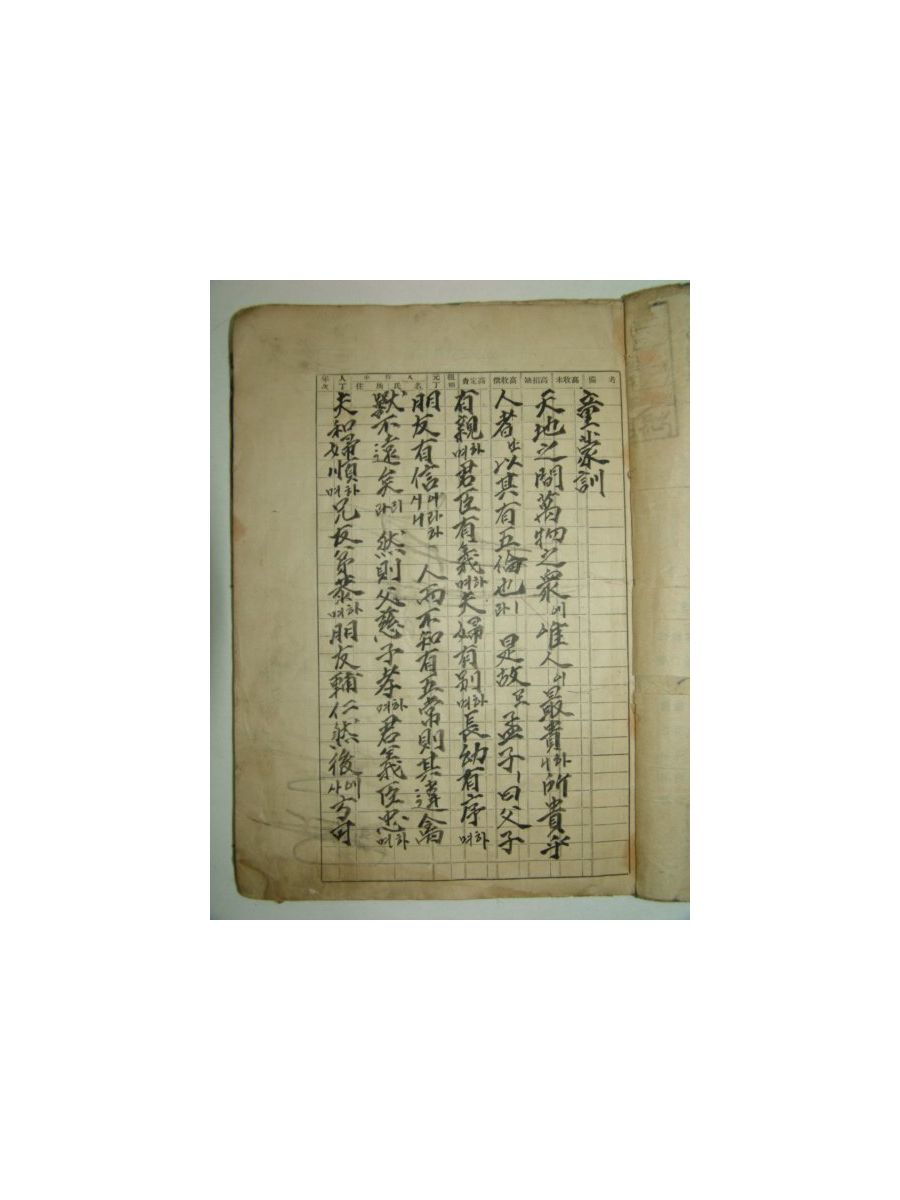 備考
未收高
年次
童蒙訓
天地之間萬物之衆에唯人이最貴하니所貴乎
人者난以其有五倫也ㅣ라是故로孟子ㅣ曰父子
有親하며君臣有義하며夫婦有別하며長幼有序하며
朋友有信이라하시니人而不知有五常則其違禽
獸不遠矣리라然則父慈子孝하며君義臣忠하며
夫和婦順하며兄友弟恭하며朋友輔仁然後에사方可